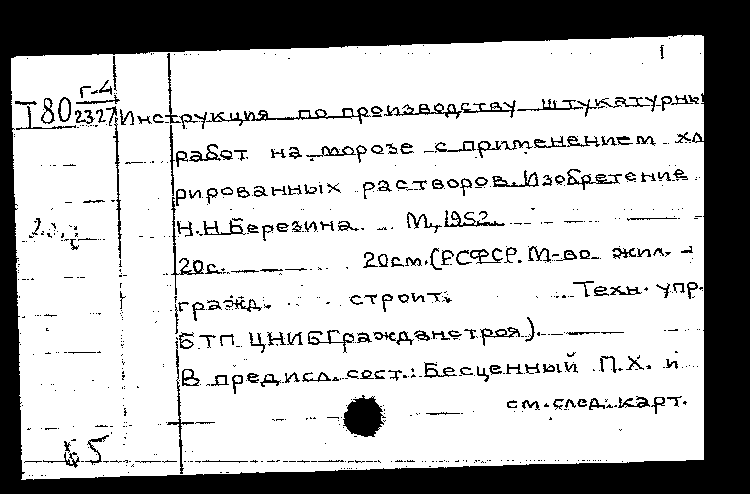 1
Г-4
Т80 2327 Инструкция по производству штукатурны
работ на морозе с применением хло
рированных растворов. Изобретение
Н.Н.Березина. М., 1952.
20с. 20см. (РСФСР. М-во жил. -
гражд. строит. Техн. упр.
БТП ЦНИБГражданстроя).
В предисл. сост.: Бесценный П.Х. и
см. след. карт.
65